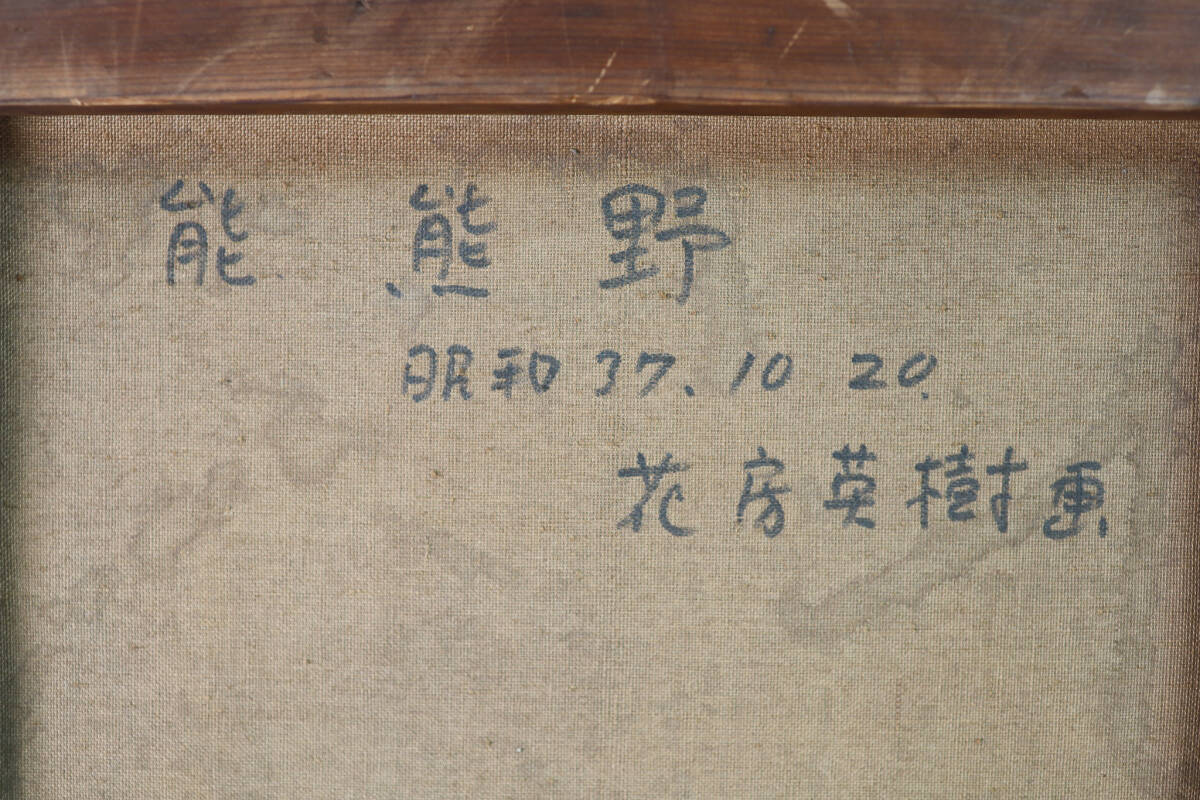 能 熊野
昭和 37. 10 20.
花房英樹画